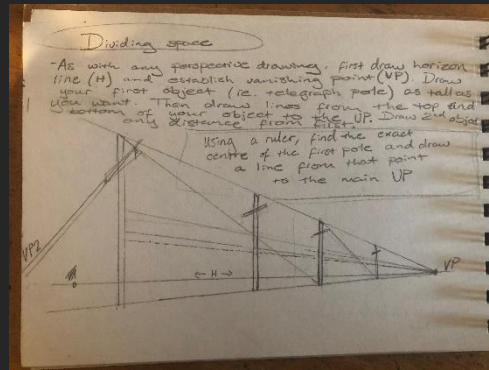 Dividing space
-As with any perspective drawing, first draw horizon
line (H) and establish vanishing point (VP). Draw
your first object (ie. telegraph pole) as tall as
you want. Then draw lines from the top and
bottom of your object to the VP. Draw 2nd object
any distance from first.
Using a ruler, find the exact
centre of the first pole and draw
a line from that point
to the main VP
VP2
H
VP